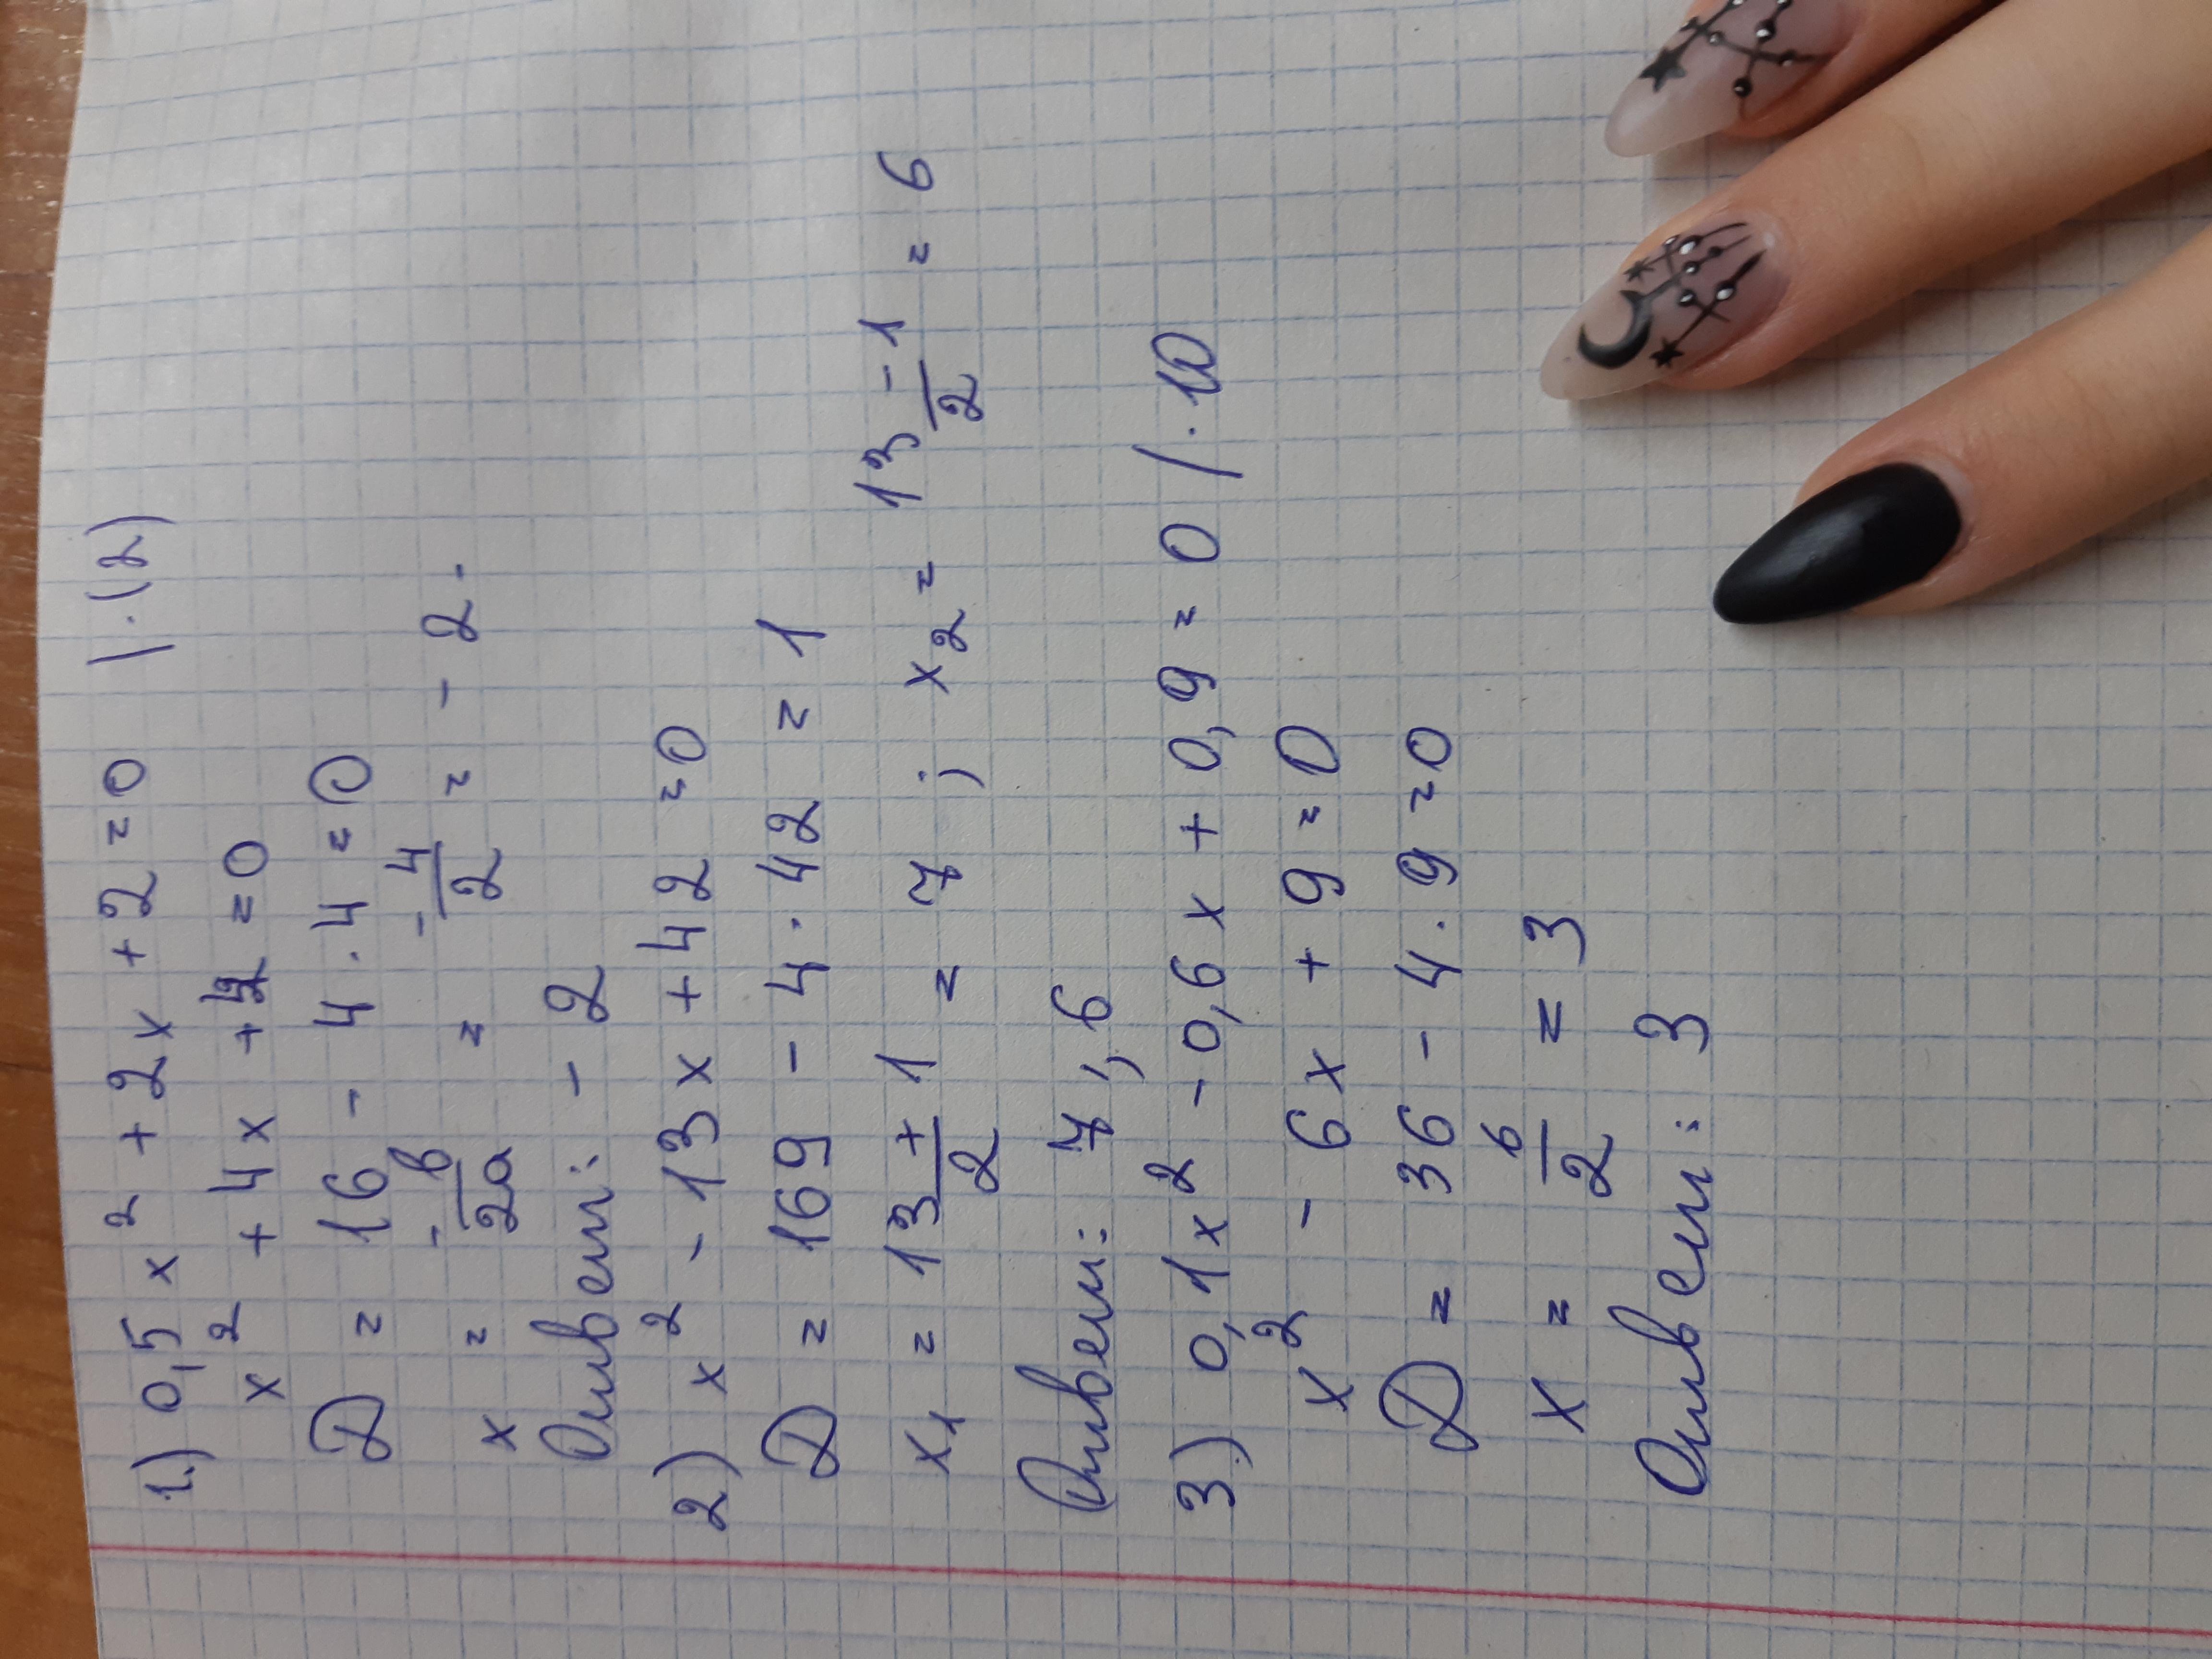 1) 0,5x² + 2x + 2 = 0 | · (2)
x² + 4x + 4 = 0
D = 16 - 4 · 4 = 0
x = -b/2a = -4/2 = -2.
Ответ: -2
2) x² - 13x + 42 = 0
D = 169 - 4 · 42 = 1
x₁ = 13 + 1/2 = 7 ; x₂ = 13 - 1/2 = 6
Ответ: 7, 6
3) 0,1x² - 0,6x + 0,9 = 0 / · 10
x² - 6x + 9 = 0
D = 36 - 4 · 9 = 0
x = 6/2 = 3
Ответ: 3